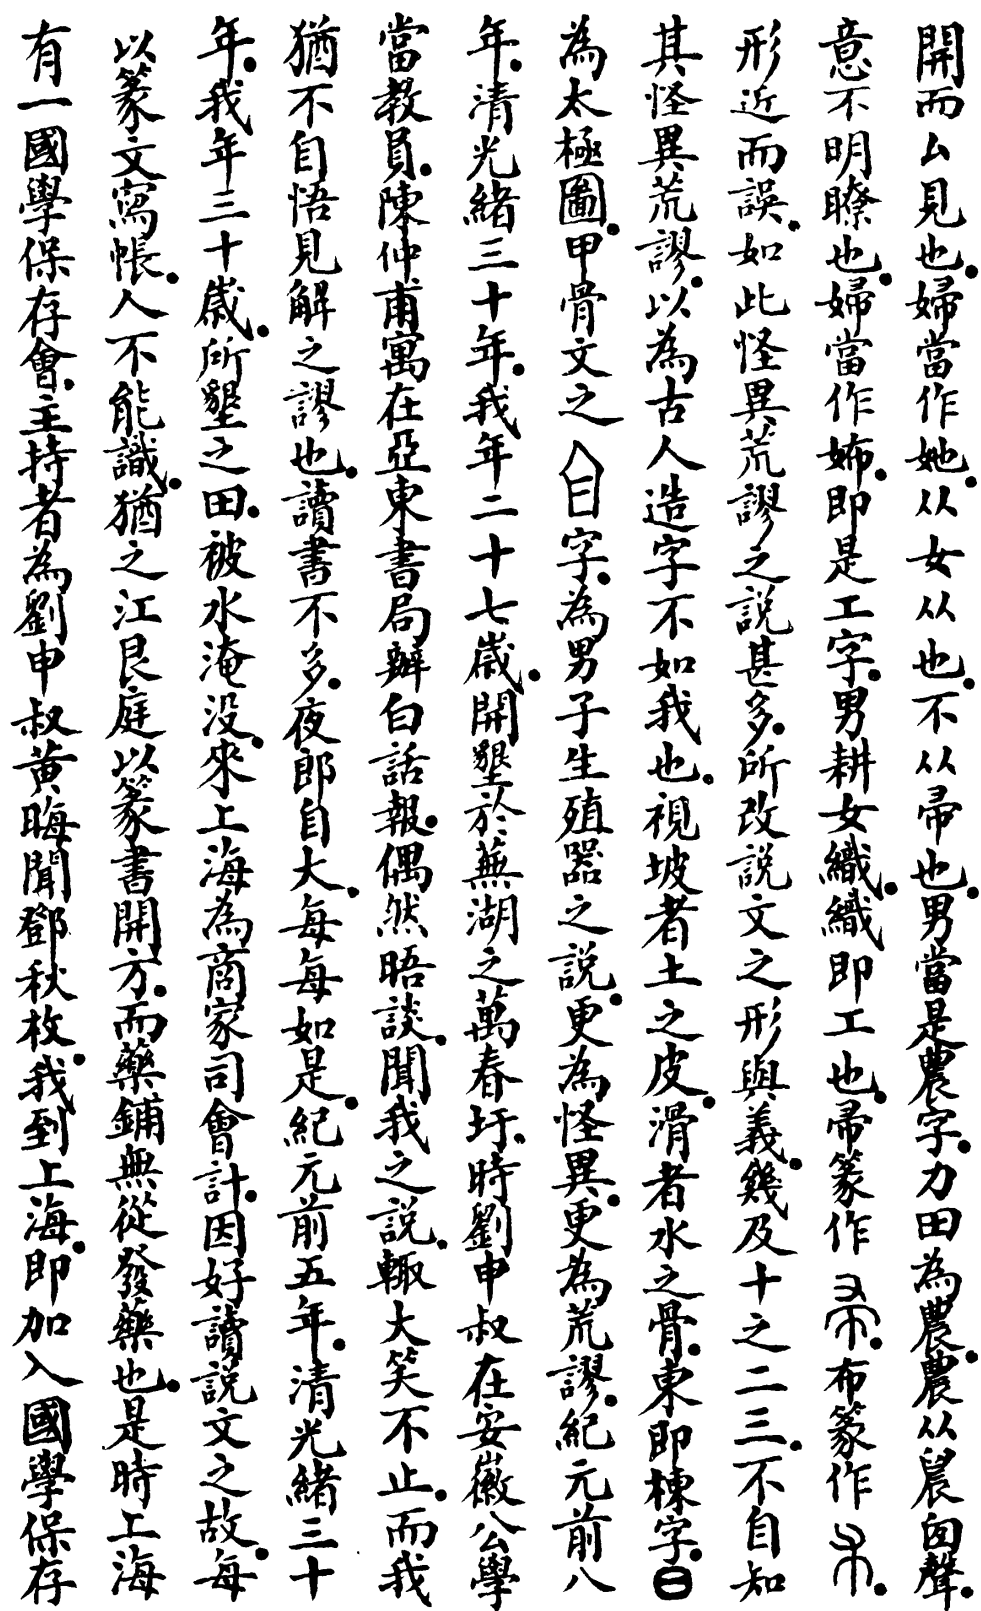 開而厶見也。婦當作她。从女从也。不从帚也。男當是農字。力田為農。農从晨囟聲。
意不明瞭也。婦當作㛍。即是工字。男耕女織。織即工也。帚篆作。布篆作。
形近而誤。如此怪異荒謬之說甚多。所改說文之形與義。幾及十之二三。不自知
其怪異荒謬。以為古人造字不如我也。視坡者土之皮。滑者水之骨。東即棟字。日
為太極圖。甲骨文之字。為男子生殖器之說。更為怪異。更為荒謬。紀元前八
年。清光緒三十年。我年二十七歲。開墾於蕪湖之萬春圩。時劉申叔在安徽公學
當教員。陳仲甫寓在亞東書局辦白話報。偶然晤談。聞我之說。輒大笑不止。而我
猶不自悟見解之謬也。讀書不多。夜郎自大。每每如是。紀元前五年。清光緒三十
年。我年三十歲。所墾之田。被水淹没。來上海為商家司會計。因好讀說文之故。每
以篆文寫帳。人不能識。猶之江艮庭以篆書開方。而藥鋪無從發藥也。是時上海
有一國學保存會。主持者為劉申叔黃晦聞鄧秋枚。我到上海。即加入國學保存